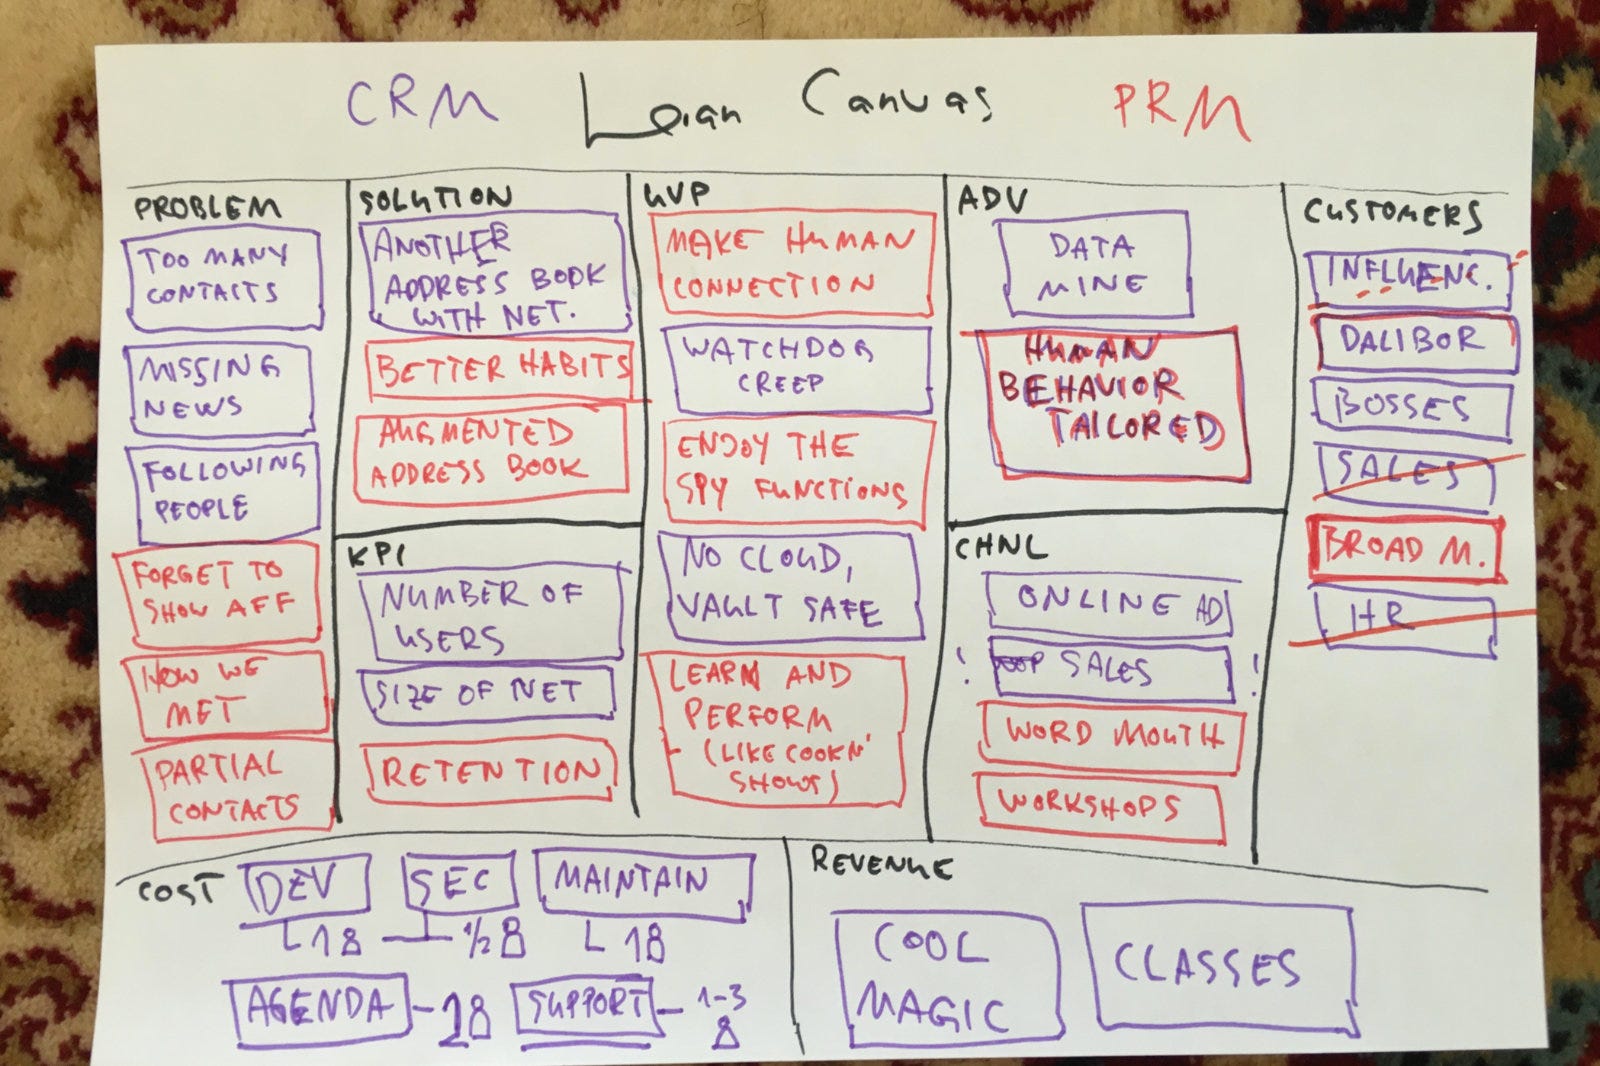 CRM Lean Canvas PRM
PROBLEM
TOO MANY
CONTACTS
MISSING
NEWS
FOLLOWING
PEOPLE
FORGET TO
SHOW AFF
HOW WE
MET
PARTIAL
CONTACTS
SOLUTION
ANOTHER
ADDRESS BOOK
WITH NET.
BETTER HABITS
AUGMENTED
ADDRESS BOOK
KPI
NUMBER OF
USERS
SIZE OF NET
RETENTION
UVP
MAKE HUMAN
CONNECTION
WATCHDOG
CREEP
ENJOY THE
SPY FUNCTIONS
NO CLOUD,
VAULT SAFE
LEARN AND
PERFORM
(LIKE COOKN'
SHOWS)
ADV
DATA
MINE
HUMAN
BEHAVIOR
TAILORED
CHNL
ONLINE AD
! SALES !
WORD MOUTH
WORKSHOPS
CUSTOMERS
INFLUENC.
DALIBOR
BOSSES
SALES
BROAD M.
HR
COST
DEV SEC MAINTAIN
1 ½ 1
AGENDA SUPPORT 1-3
REVENUE
COOL
MAGIC
CLASSES